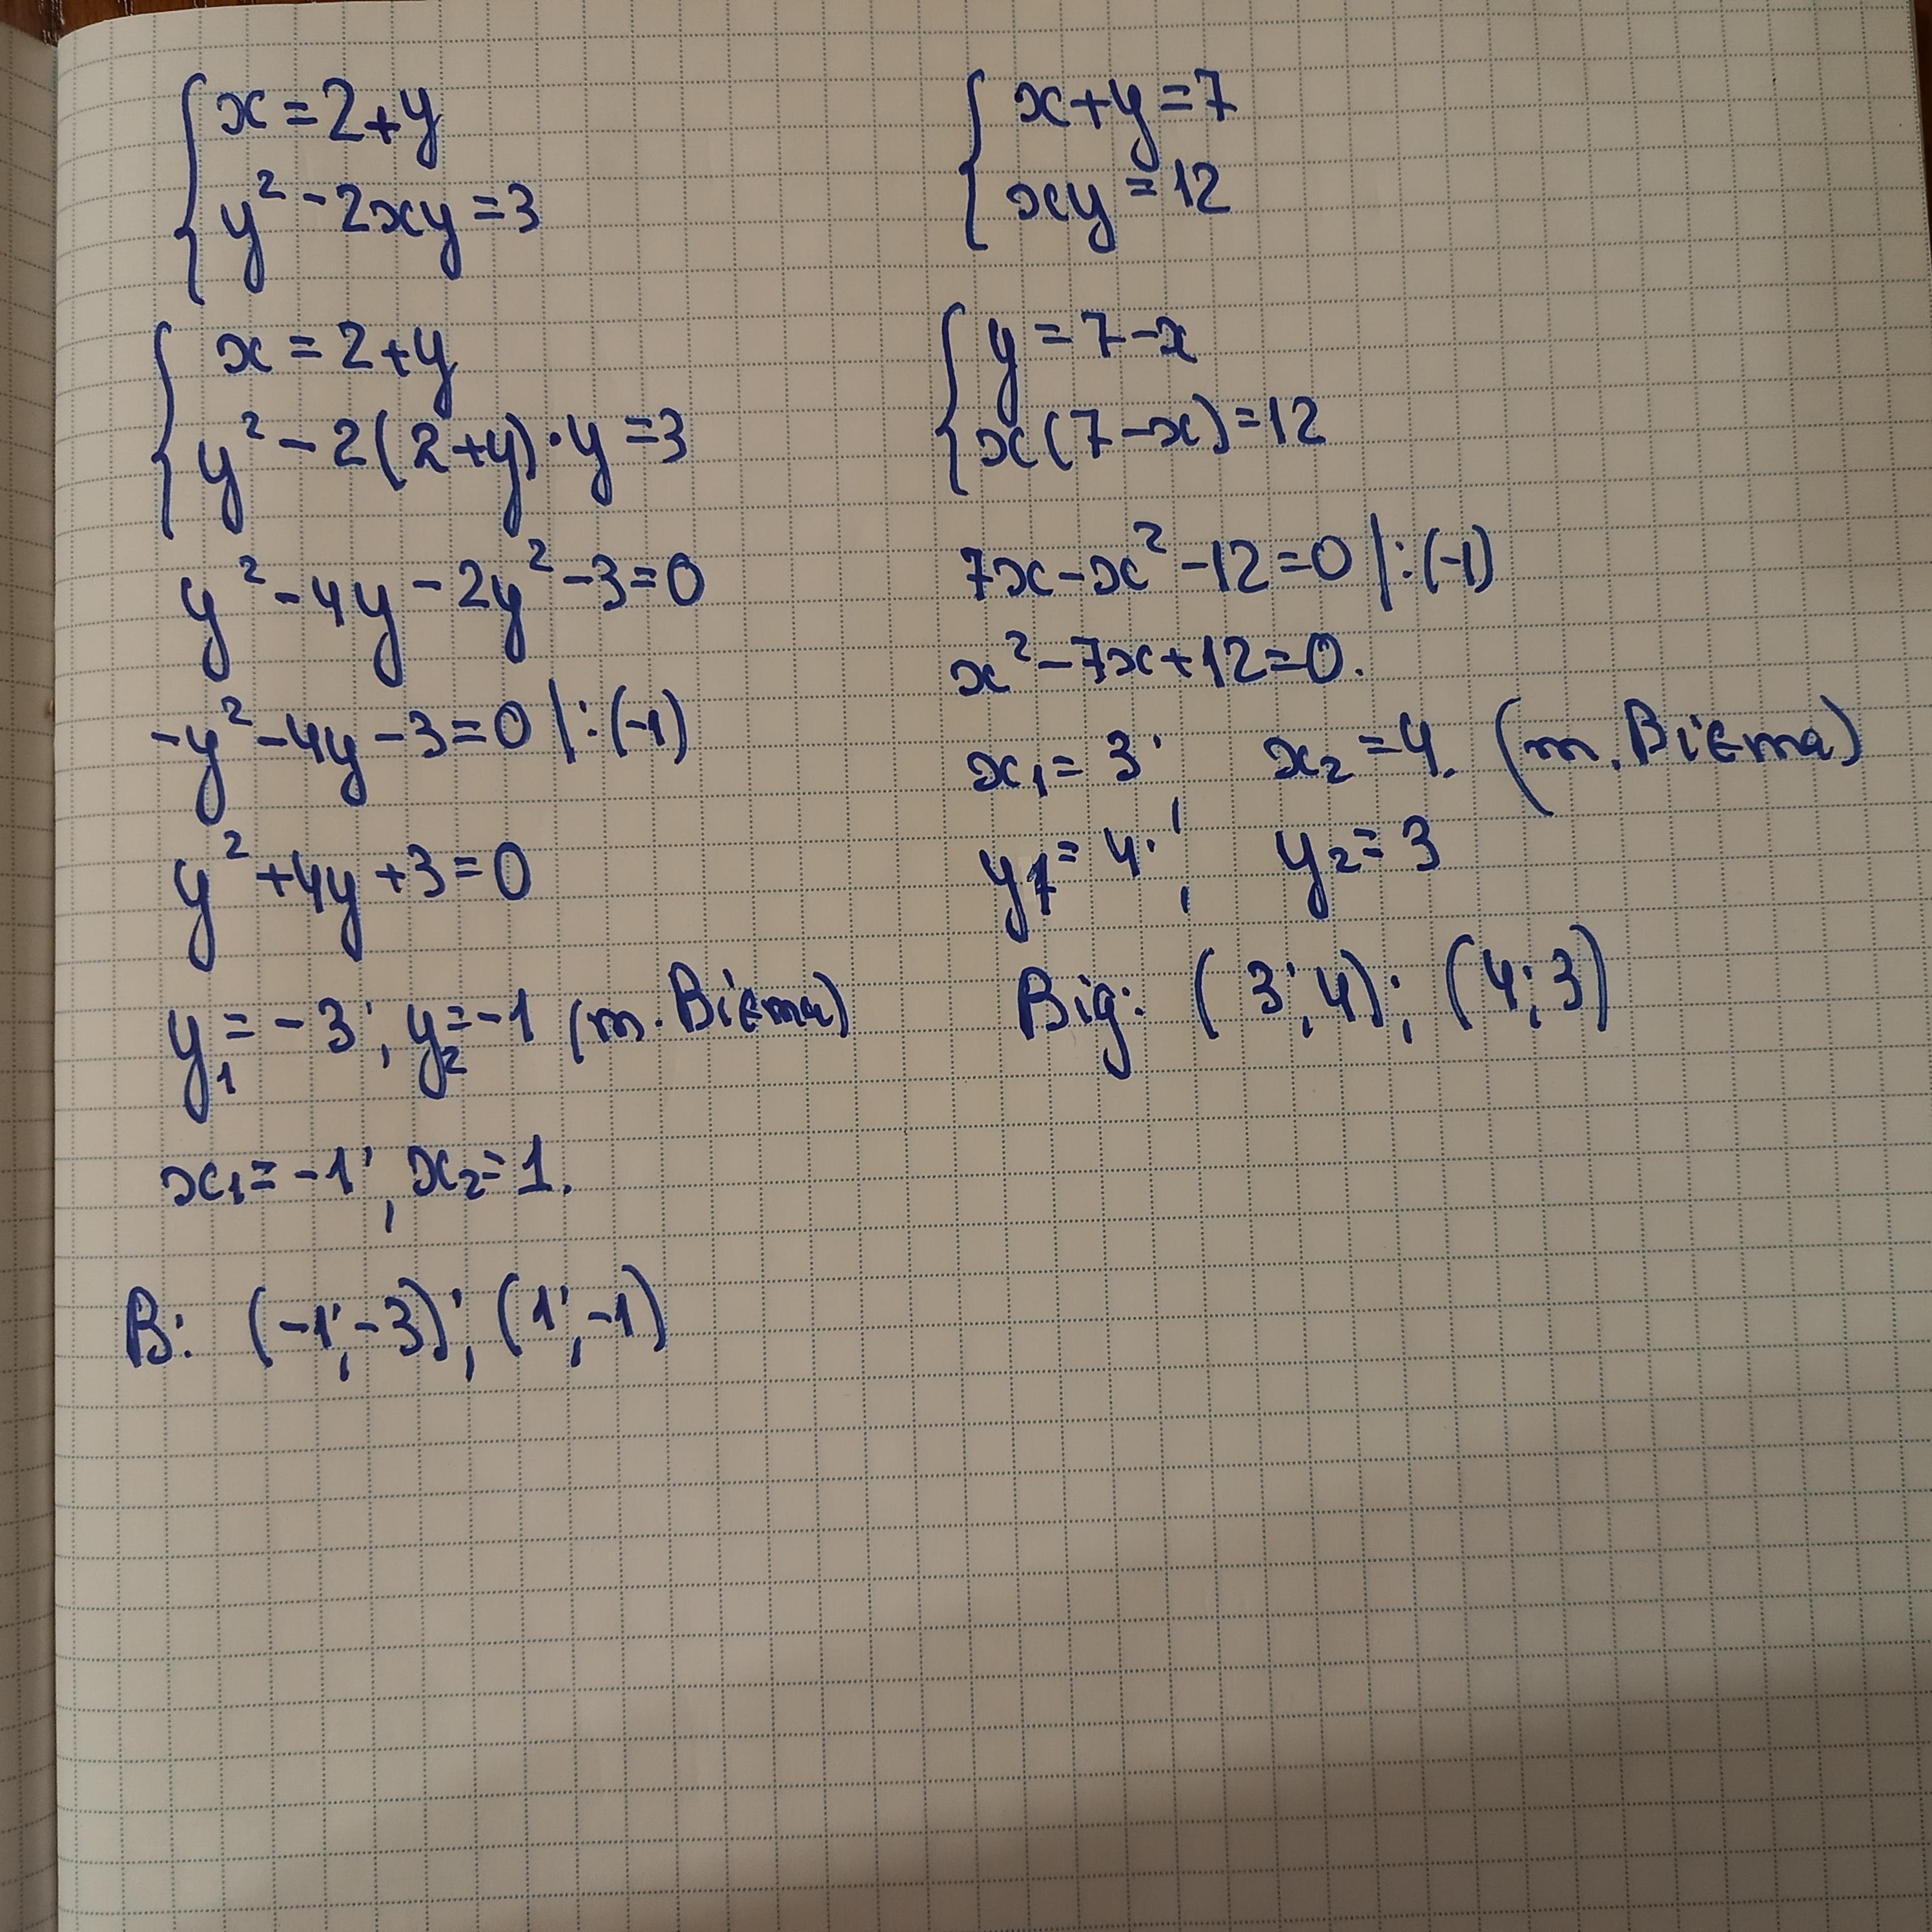 x = 2 + y
y² - 2xy = 3
x = 2 + y
y² - 2(2 + y) · y = 3
y² - 4y - 2y² - 3 = 0
-y² - 4y - 3 = 0 | : (-1)
y² + 4y + 3 = 0
y₁ = -3; y₂ = -1 (т. Вієта)
x₁ = -1; x₂ = 1.
В: (-1; -3); (1; -1)
x + y = 7
xy = 12
y = 7 - x
x(7 - x) = 12
7x - x² - 12 = 0 | : (-1)
x² - 7x + 12 = 0.
x₁ = 3; x₂ = 4. (т. Вієта)
y₁ = 4; y₂ = 3
Від: (3; 4); (4; 3)